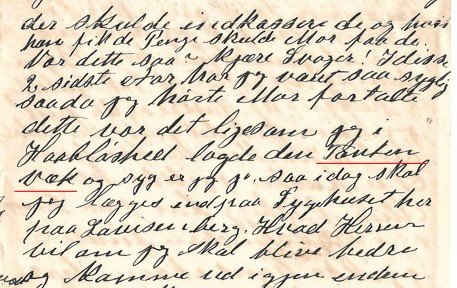 der skulde indkassere de og naar
han fik de Penge skulde Mor faa de.
Var dette saa? Kjære Svoger! I disse
2 sidste aar har jeg været saa syglig
saa da jeg hørte Mor fortalte
dette var det ligesom jeg i
Haabløshed lagde den Tanken
væk og syg er jeg jo. saa idag skal
jeg lægges ind paa Sygehuset her
paa Lovisenberg. Hvad Herren
vil om jeg skal blive bedre
og komme ud igjen enden